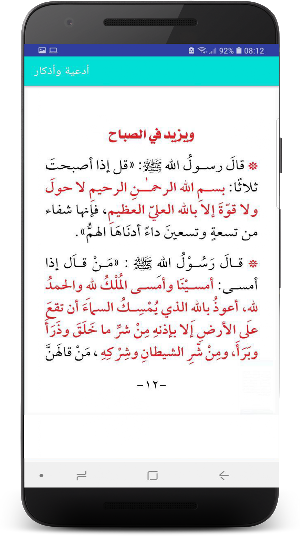 92% 08:12
أدعية وأذكار
ويزيد في الصباح
❊ قالَ رسولُ الله ﷺ: «قل إذا أصبحتَ
ثلاثًا: بسم الله الرحمـٰن الرحيم لا حولَ
ولا قوّةَ إلا بالله العليّ العظيم، فإنها شفاء
من تسعةٍ وتسعينَ داءً أدنَاهَا الهمُّ».
❊ قَالَ رَسُوْلُ الله ﷺ : «مَنْ قَال إذا
أمسى: أمسَيْنَا وأمسَى المُلْكُ لله والحمدُ
لله، أعوذُ بالله الذي يُمْسِكُ السماءَ أن تقعَ
علَى الأرضِ إلا بإذنهِ مِنْ شرِّ ما خَلَقَ وذَرَأَ
وبَرَأَ، ومِنْ شّرِ الشيطانِ وشِرْكِهِ، مَنْ قالهَنَّ
-١٢-